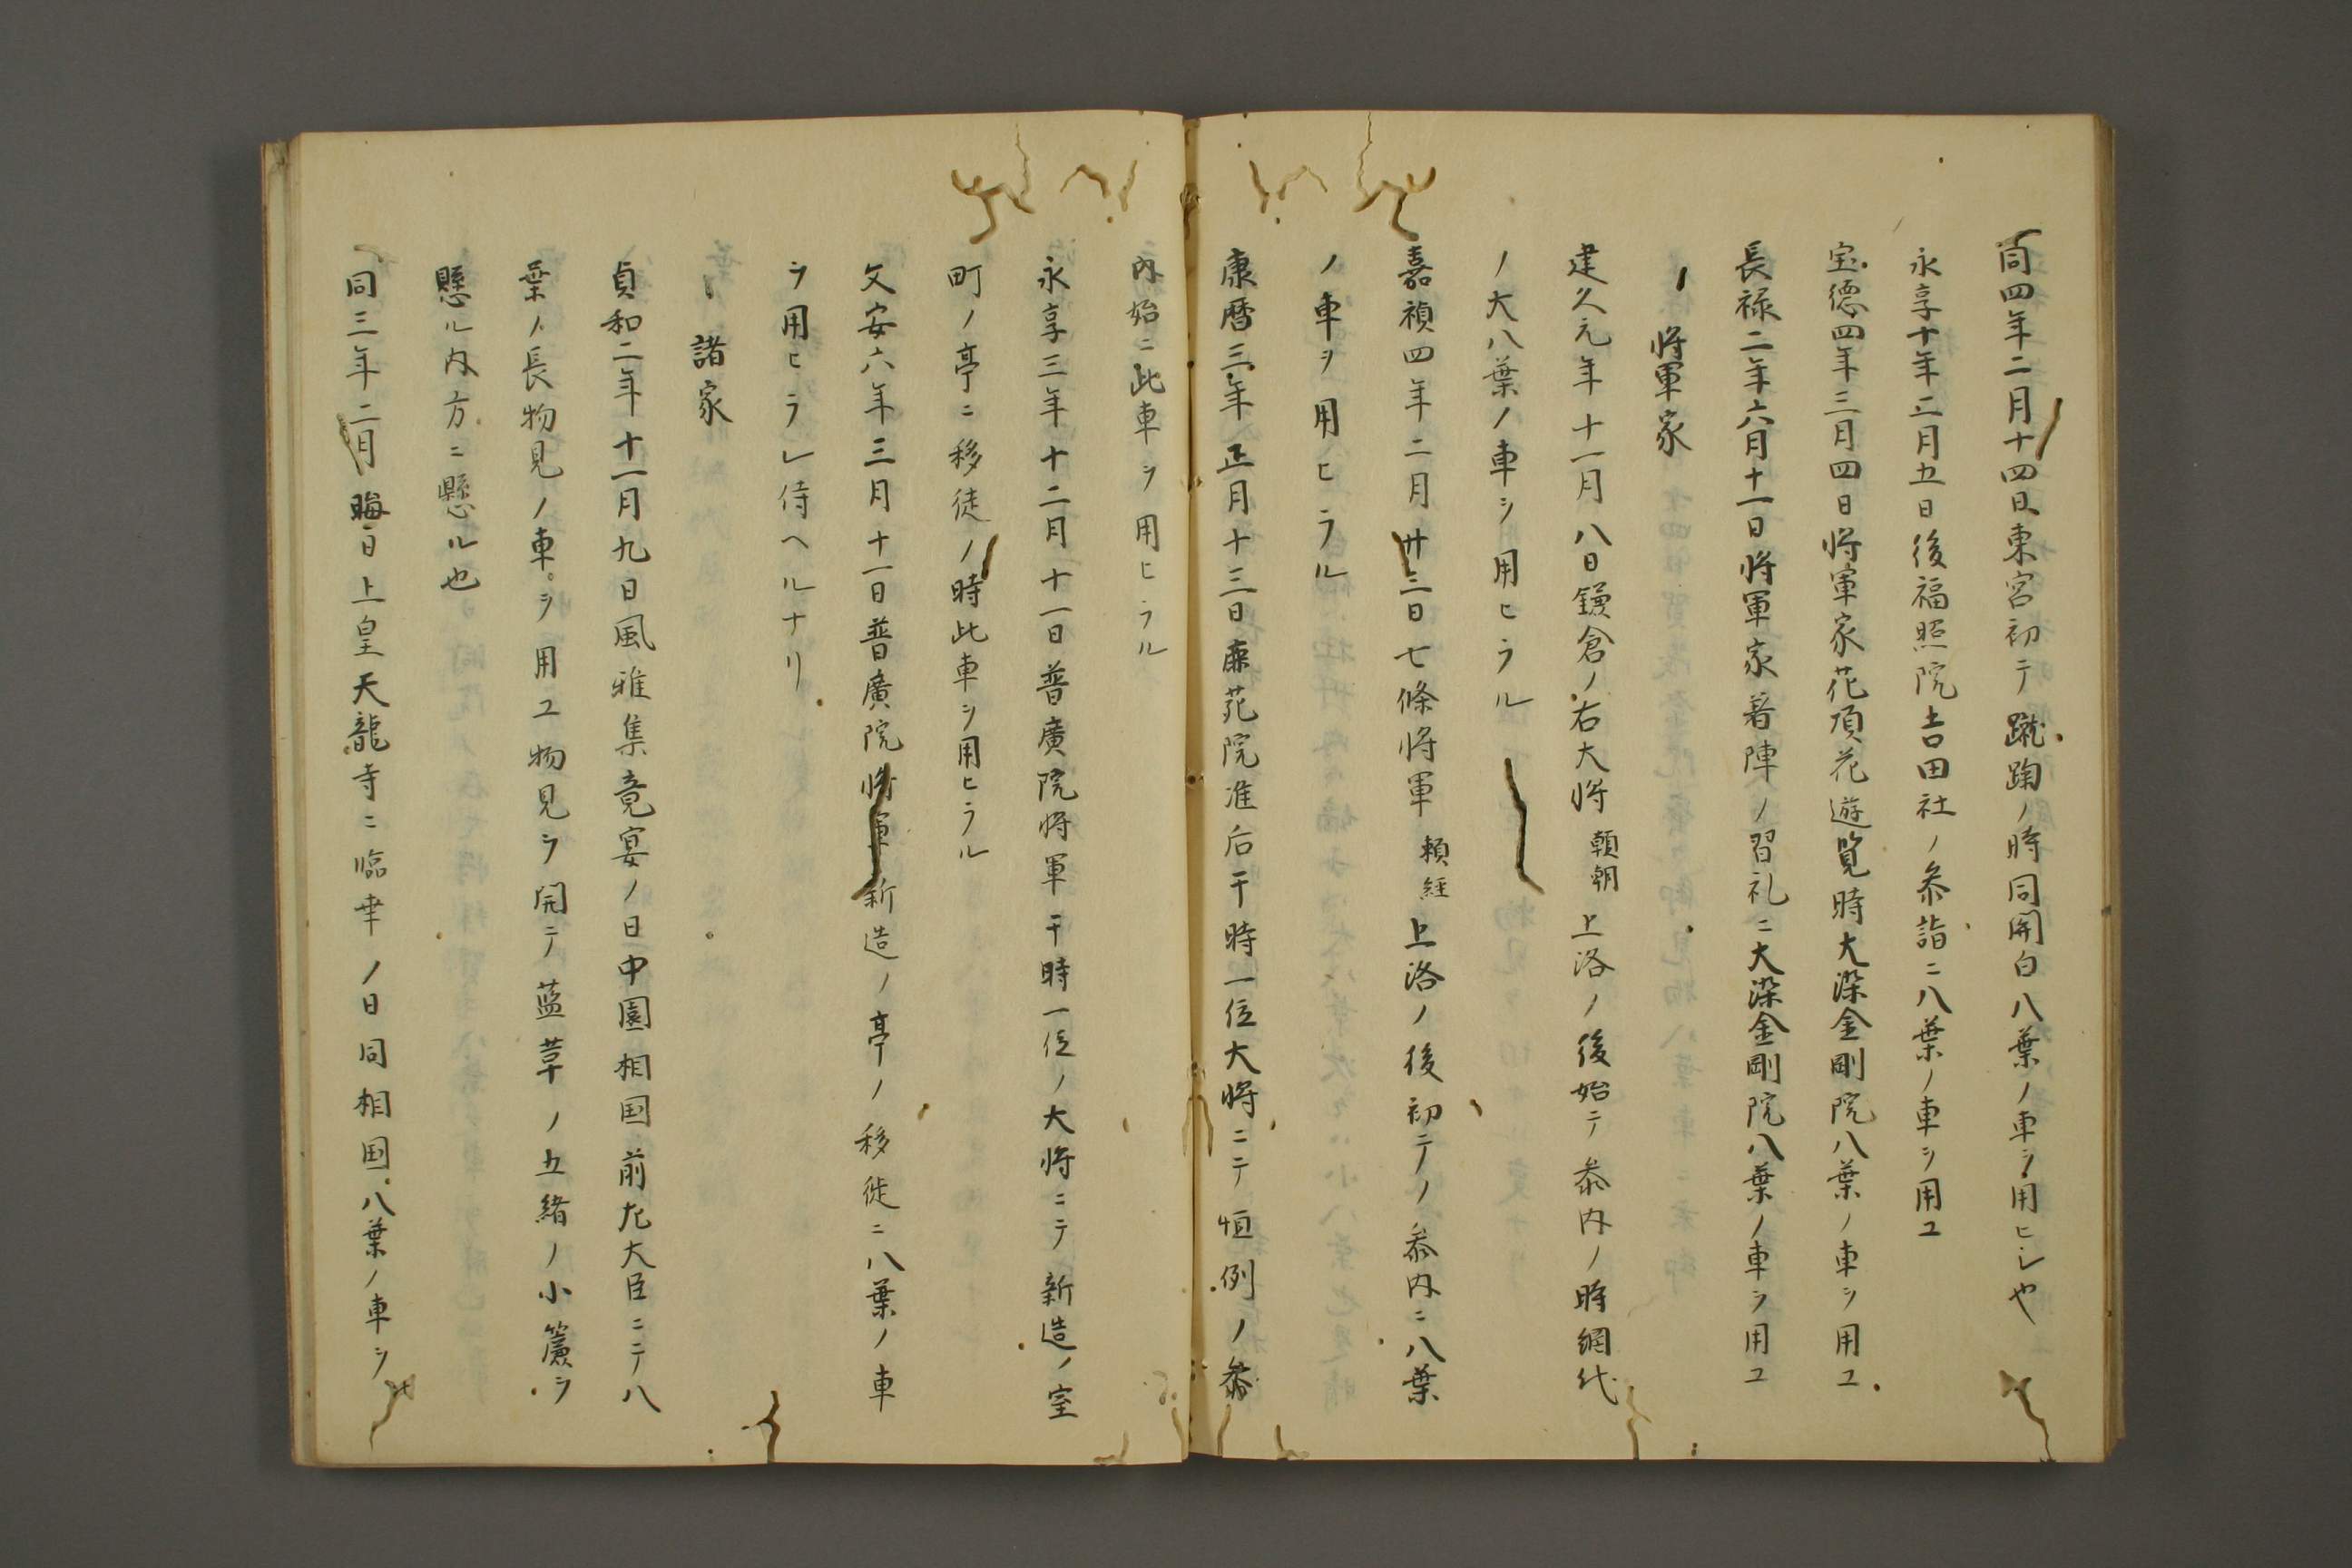 同四年二月十四日東宮初テ蹴鞠ノ時同開白八葉ノ車ヲ用ヒシ也
永享十年二月五日後福照院吉田社ノ参詣ニ八葉ノ車ヲ用ユ
宝徳四年三月四日将軍家花頂花遊覧時大染金剛院八葉ノ車ヲ用ユ
長禄二年六月十一日将軍家着陣ノ習礼ニ大染金剛院八葉ノ車ヲ用ユ
将軍家
建久元年十一月八日鎌倉ノ右大将頼朝上洛ノ後始テ参内ノ時網代
ノ大八葉ノ車ヲ用ヒラル
嘉禎四年二月廿三日七條将軍頼経上洛ノ後初テノ参内ニ八葉
ノ車ヲ用ヒラル
康暦三年正月十三日鹿苑院准后干時一位大将ニテ恒例ノ参
内始ニ此車ヲ用ヒラル
永享三年十二月十一日普廣院将軍干時一位ノ大将ニテ新造ノ室
町ノ亭ニ移徒ノ時此車ヲ用ヒラル
文安六年三月十一日普廣院将軍新造ノ亭ノ移徙ニ八葉ノ車
ヲ用ヒラレ侍ヘルナリ
諸家
貞和二年十一月九日風雅集竟宴ノ日中園相国前左大臣ニテ八
葉ノ長物見ノ車ヲ用ユ物見ヲ開テ藍革ノ五緒ノ小簾ヲ
懸ル内方ニ懸ル也
同三年二月晦日上皇天龍寺ニ臨幸ノ日同相国八葉ノ車ヲ